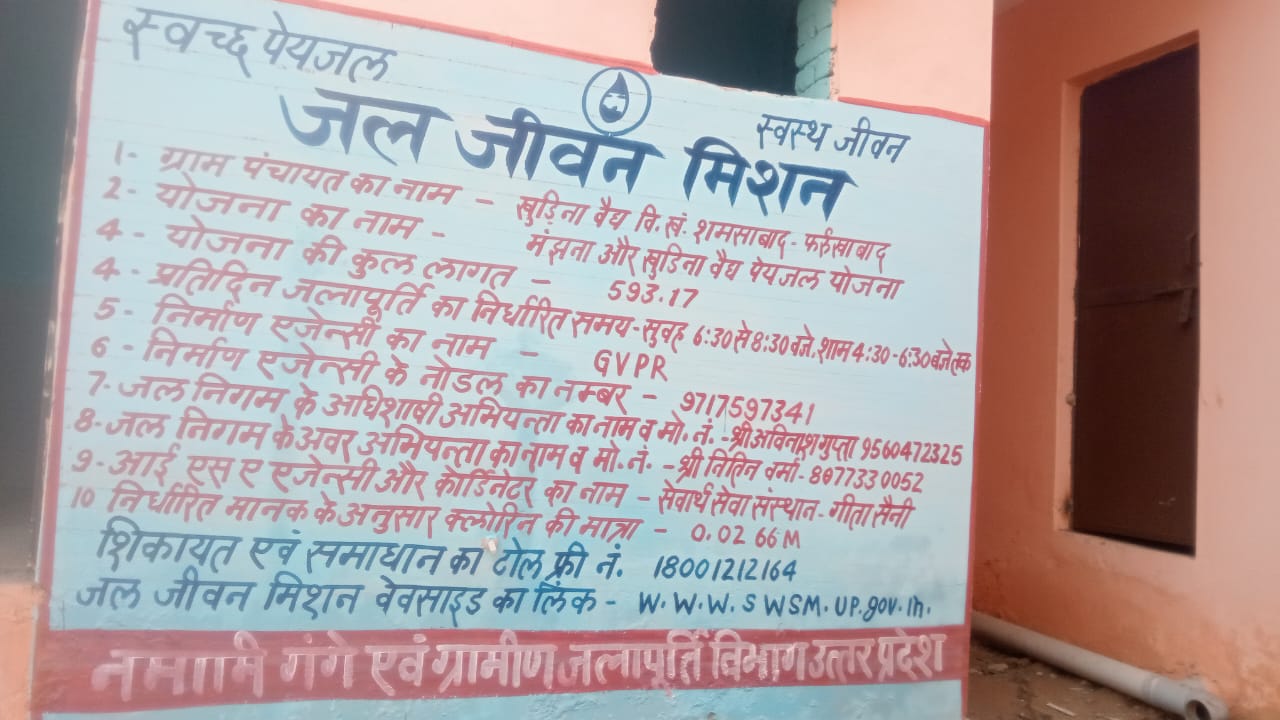 स्वच्छ पेयजल
स्वस्थ जीवन
जल जीवन मिशन
1- ग्राम पंचायत का नाम - खुडिना वैद्य वि.खं. शमसाबाद - फर्रुखाबाद
2- योजना का नाम - मंझना और खुडिना वैद्य पेयजल योजना
4- योजना की कुल लागत - 593.17
4- प्रतिदिन जलापूर्ति का निर्धारित समय-सुवह 6:30 से 8:30 बजे. शाम 4:30-6:30 बजे तक
5- निर्माण एजेन्सी का नाम - GVPR
6- निर्माण एजेन्सी के नोडल का नम्बर - 9717597341
7- जल निगम के अधिशाषी अभियन्ता का नाम व मो. नं. - श्री अविनाश गुप्ता 9560472325
8- जल निगम के अवर अभियन्ता का नाम व मो. नं. - श्री नितिन वर्मा - 8077330052
9- आई एस ए एजेन्सी और कोर्डिनेटर का नाम - सेवार्थ सेवा संस्थान - गीता सैनी
10 निर्धारित मानक के अनुसार क्लोरिन की मात्रा - 0.02 66 M
शिकायत एवं समाधान का टोल फ्री नं. 18001212164
जल जीवन मिशन वेवसाइड का लिंक - W.W.W. SWSM.UP.gov.in.
नमामि गंगे एवं ग्रामीण जलापूर्ति विभाग उत्तर प्रदेश